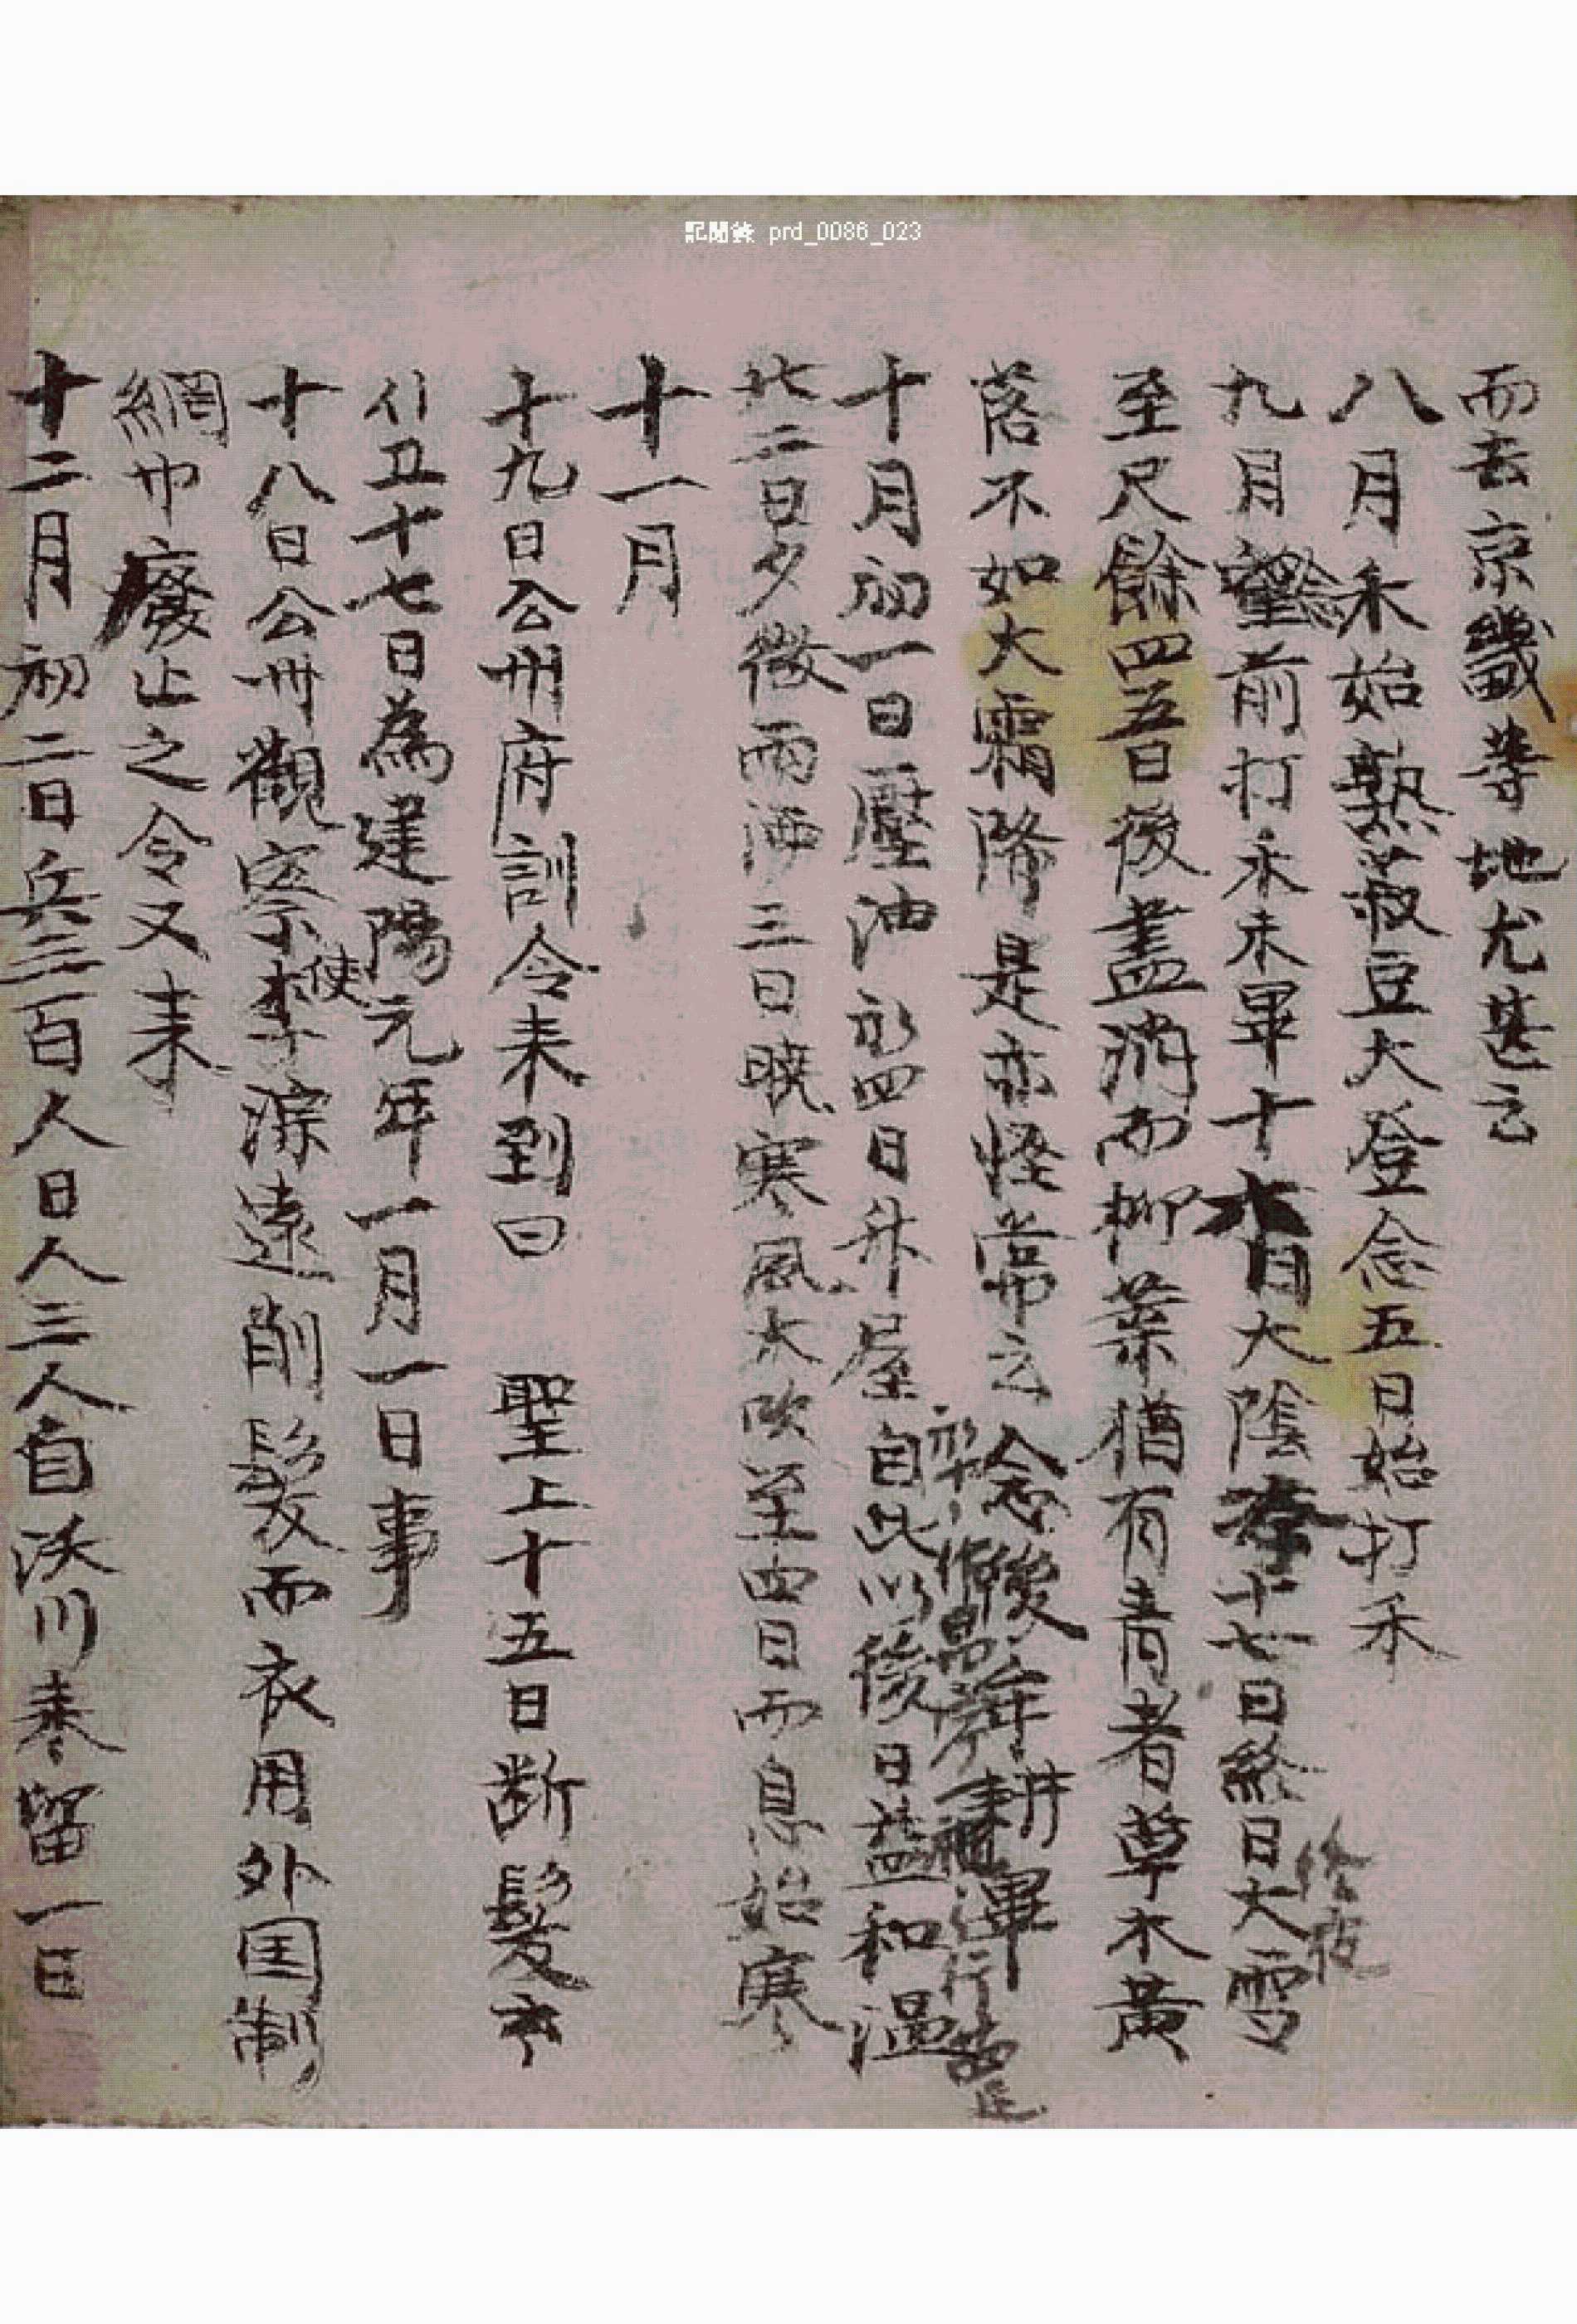 記聞錄 prd_0086_023
而去京畿等地尤甚云
八月禾始熟菽豆大登念五日始打禾
九月望前打禾未畢十六日大陰十七日終日大雪
至尺餘四五日後盡消而柳葉猶有青者草木黃
落不如大霜降是亦怪常云念後牟耕畢
十月初一日壓油初四日升屋自此以後日益和溫
廿二日夕微雨洒三日曉寒風大吹至四日而息始寒
十一月
十九日公州府訓令来到曰 聖上十五日断髮亦
以丑十七日為建陽元年一月一日事
十八日公州觀察使李淙遠削髮而衣用外国制
網巾廢止之令又来
十二月初二日兵三百人日人三人自沃川来留一日